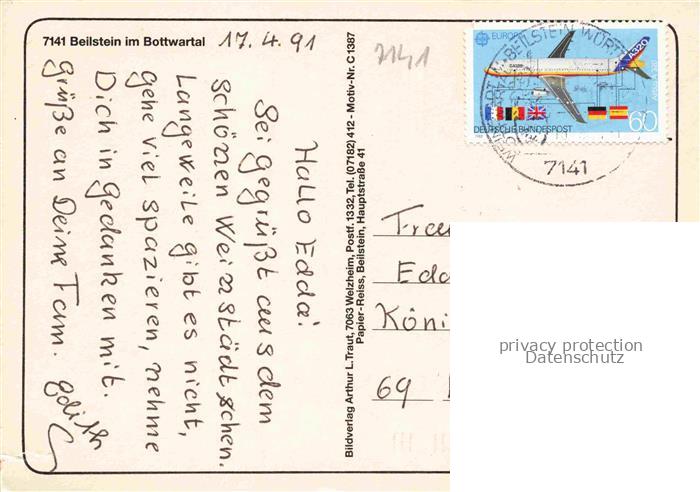 7141 Beilstein im Bottwartal
17.4.91
Hallo Edda!
Sei gegrüßt aus dem
schönen Weinstädtchen.
Langeweile gibt es nicht,
gehe viel spazieren, nehme
Dich in Gedanken mit.
Grüße an Deine Fam. Edith
Bildverlag Arthur L. Traut, 7063 Welzheim, Postf. 1332, Tel. (07182) 412 - Motiv-Nr. C 1387
Papier-Reiss, Beilstein, Hauptstraße 41
7141
EUROPA
A320
DEUTSCHE BUNDESPOST
60
BEILSTEIN, WÜRTT
7141
Frau
Edd
Köni
69
privacy protection
Datenschutz